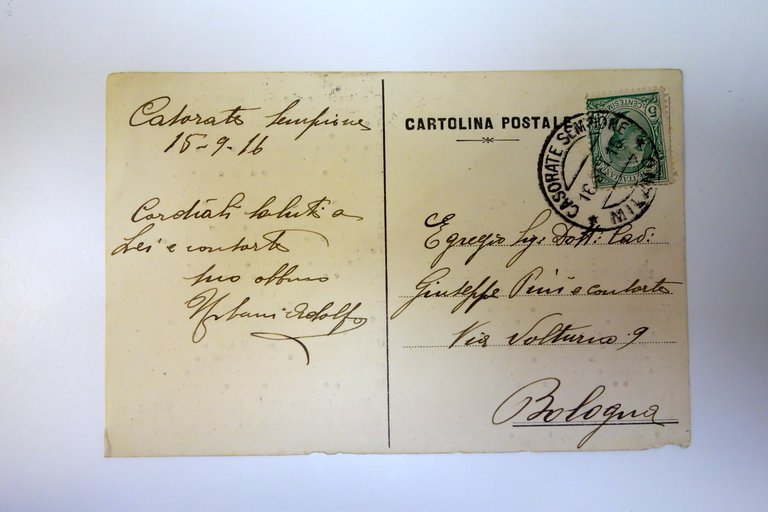 Casorate Sempione
15-9-16
Cordiali saluti a
Lei e consorte
suo obbmo
Urbani Adolfo
CARTOLINA POSTALE
CENTESIMI
5
CASORATE SEMPIONE
MILANO
16
Egregio Sig: Dott: Cav:
Giuseppe Pini e consorte
Via Volturno 9
Bologna